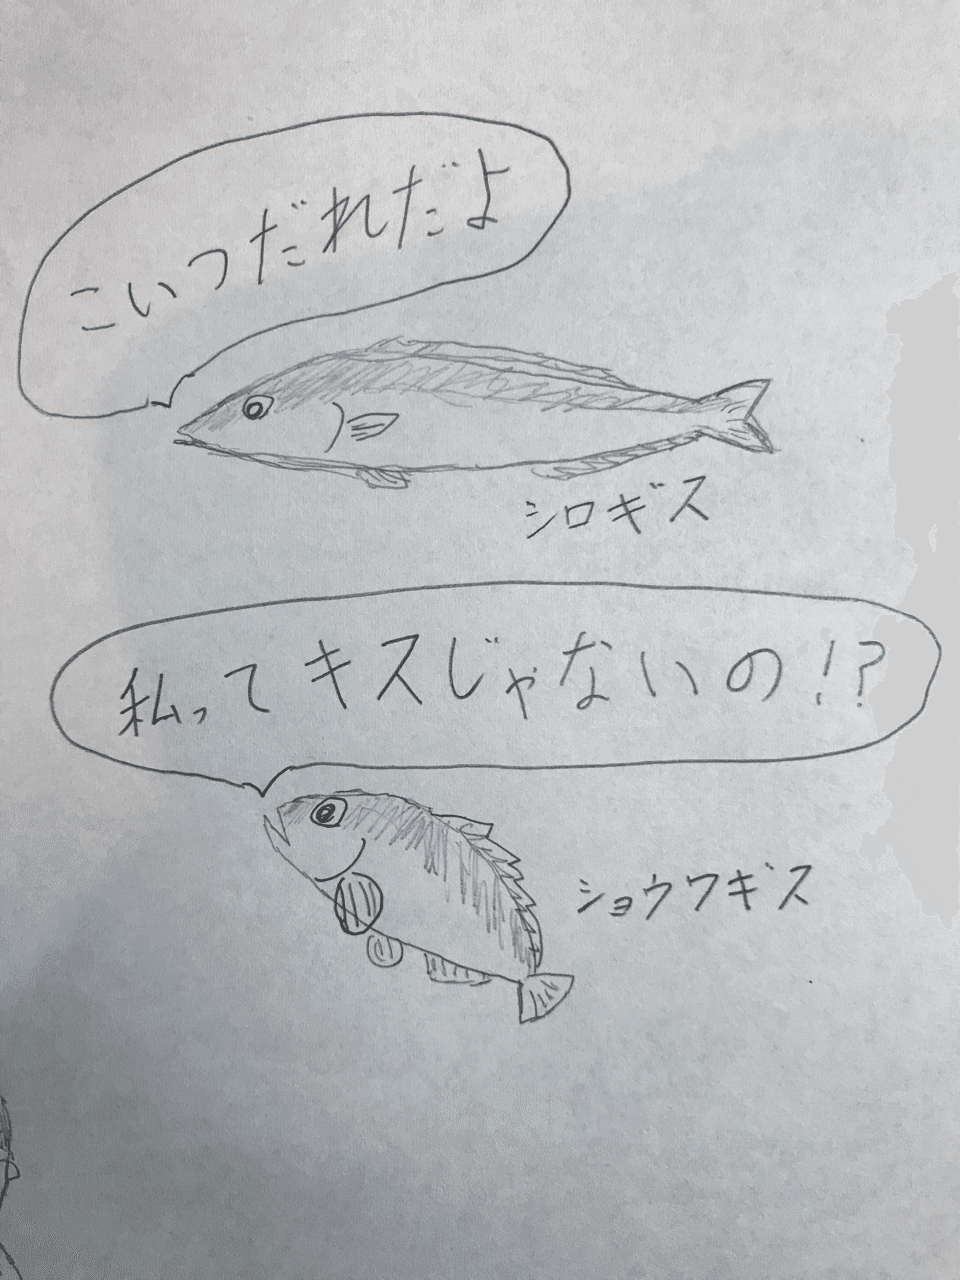 こいつだれだよ
シロギス
私ってキスじゃないの!?
ショウワギス